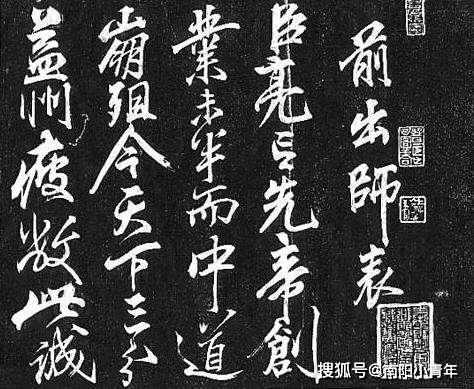 前出師表
臣亮言先帝創
業未半而中道
崩殂今天下三分
益州疲敝此誠
搜狐号@南阳小青年